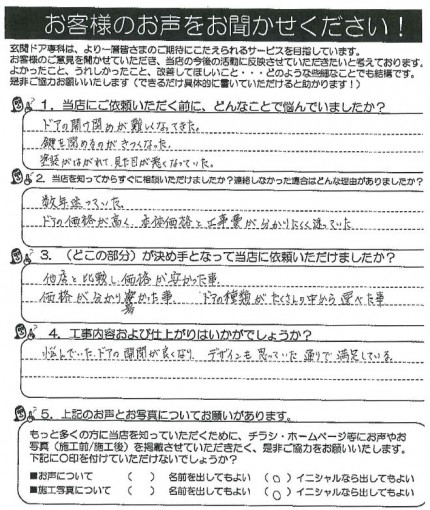 お客様のお声をお聞かせください！
玄関ドア専科は、より一層皆さまのご期待にこたえられるサービスを目指しています。
お客様のご意見を聞かせていただき、当店の今後の活動に反映させていただきたいと考えております。
よかったこと、うれしかったこと、改善してほしいこと・・・どのような些細なことでも結構です。
是非ご協力お願いいたします（できるだけ具体的に書いていただけると助かります！）
1．当店にご依頼いただく前に、どんなことで悩んでいましたか？
ドアの開け閉めが難しくなってきた。
鍵を閉めるのがきつくなった。
塗装がはがれて、見た目が悪くなっていた。
2．当店を知ってからすぐに相談いただけましたか？連絡しなかった場合はどんな理由がありましたか？
数年迷っていた。
ドアの価格が高く、本体価格と工事費が分かりにくく迷っていた
3．（どこの部分）が決め手となって当店に依頼いただけましたか？
他店と比較し価格が安かった事
価格が分かり易かった事 ドアの種類がたくさんの中から選べた事
4．工事内容および仕上がりはいかがでしょうか？
悩んでいたドアの開閉が良くなり、デザインも思っていた通りで満足している。
5．上記のお声とお写真についてお願いがあります。
もっと多くの方に当店を知っていただくために、チラシ・ホームページ等にお声やお
写真（施工前/施工後）を掲載させていただきたく、是非ご協力をお願いいたします。
下記に〇印を付けていただけないでしょうか？
■お声について （ ） 名前を出してもよい （○）イニシャルなら出してもよい
■施工写真について （ ） 名前を出してもよい （○）イニシャルなら出してもよい